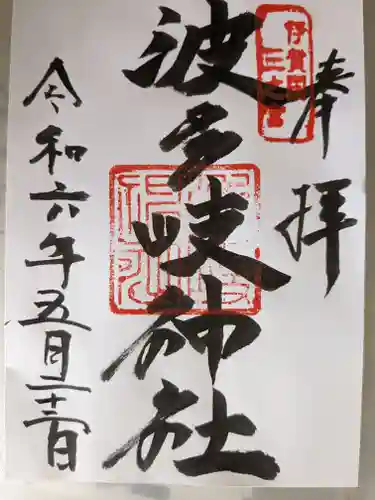 奉拝
伊賀國三之宮
波多岐神社
令和六年五月二十三日